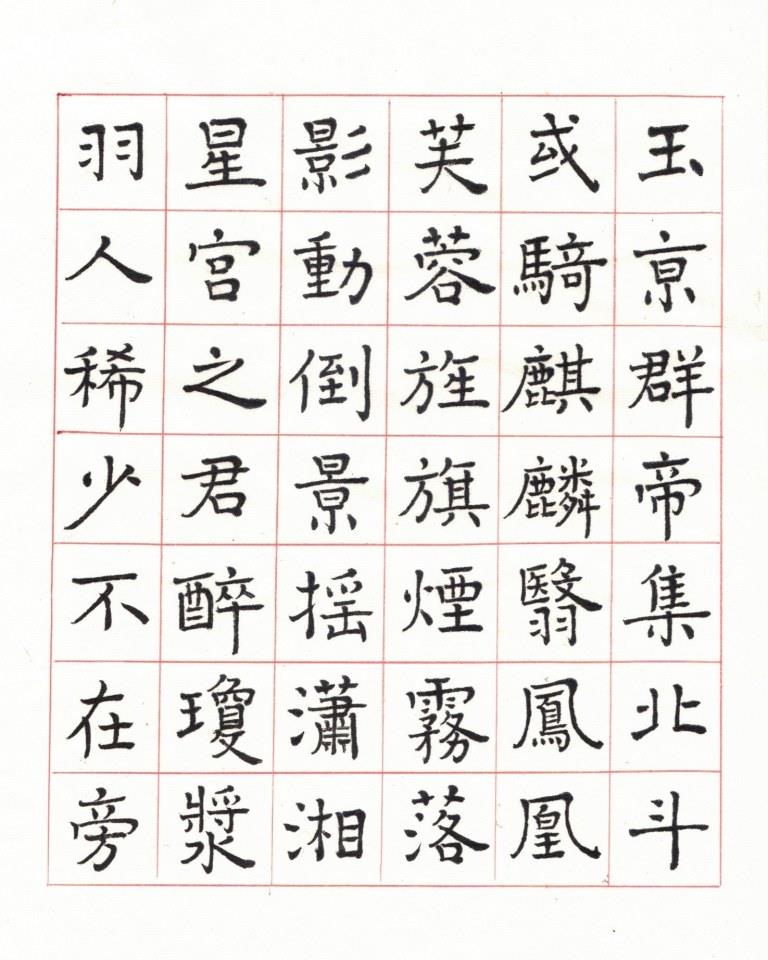 玉亰群帝集北斗
或騎麒麟翳鳳凰
芙蓉旌旗煙霧落
影動倒景搖瀟湘
星宮之君醉瓊漿
羽人稀少不在旁